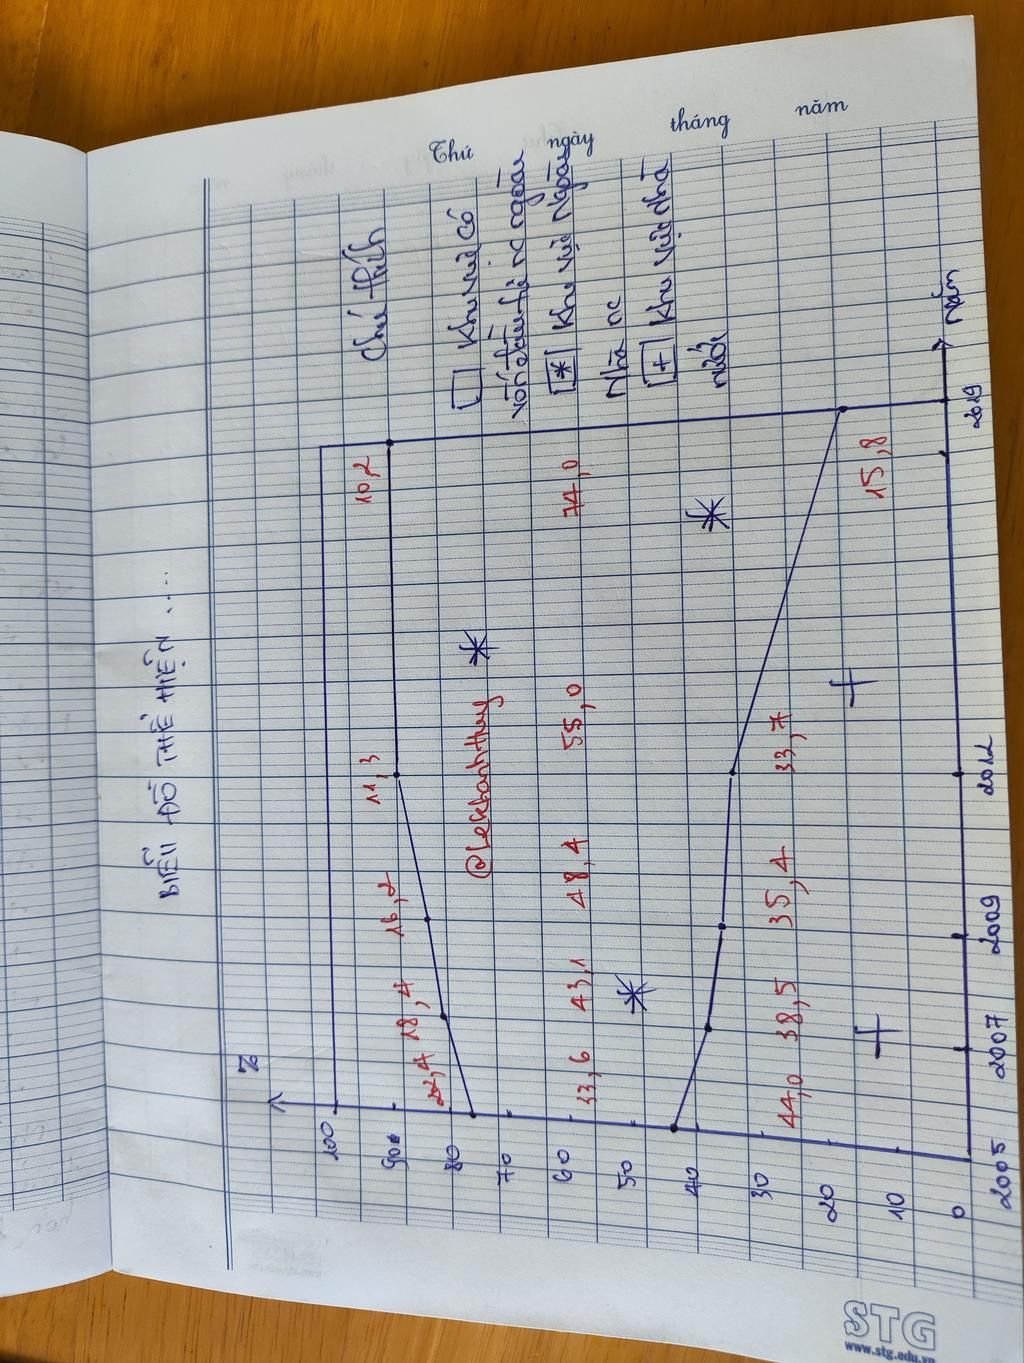 Thứ ngày tháng năm
BIỂU ĐỒ THỂ HIỆN ....
%
100
90
80
70
60
50
40
30
20
10
0
22,4 18,4 16,2 11,3 10,2
@Lekhanhhuy
33,6 43,1 48,4 55,0 74,0
44,0 38,5 35,4 33,7 15,8
2005 2007 2009 2012 2019
Năm
Chú thích
Khu vực có
vốn đầu tư nc ngoài
* Khu vực Ngoài
Nhà nc
+ Khu vực nhà
nước
STG
www.stg.edu.vn